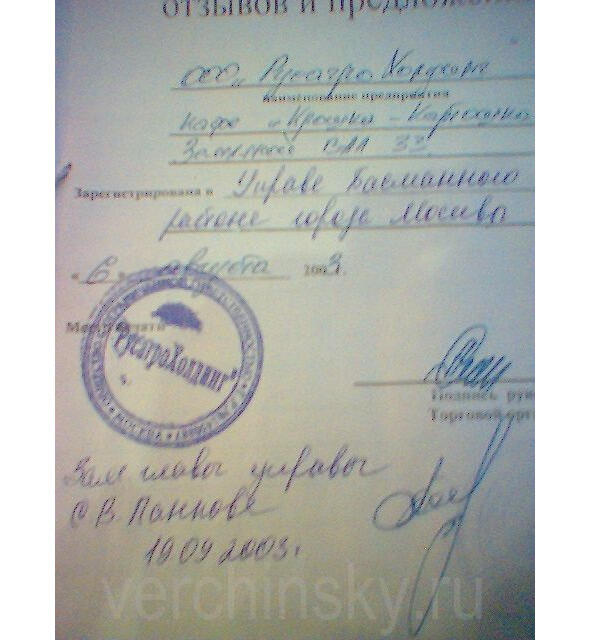 отзывов и предложений
ООО „РусагроХолдинг
наименование предприятия
кафе „Крошка-Картошка
Земляной вал 33
Зарегистрирована в Управе Басманного
районе города Москва
„ 6 " августа 2003г.
Место печати
"РусагроХолдинг"
МОСКВА
Подпись рук
Торговой орг
Зам главы управы
С В Панкова
19 09 2003г
verchinsky.ru